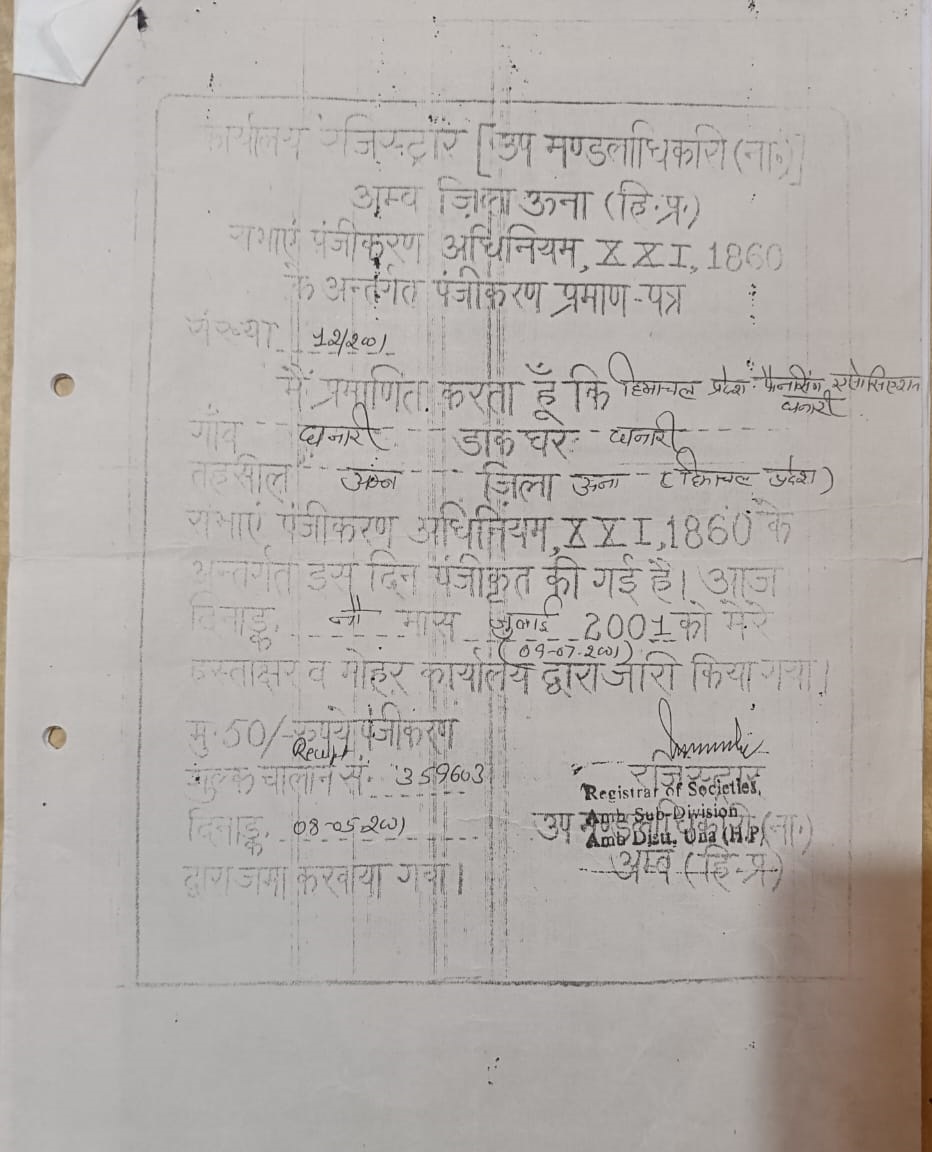 कार्यालय रजिस्ट्रार [उप मण्डलाधिकारी (ना.)]
अम्ब ज़िला ऊना (हि.प्र.)
सभाएं पंजीकरण अधिनियम, XXI, 1860
के अन्तर्गत पंजीकरण प्रमाण-पत्र
संख्या 12/2001
मैं प्रमाणित करता हूँ कि हिमाचल प्रदेश फैनसिंग एसोसिएशन
धनारी
गाँव धनारी डाक घर धनारी
तहसील अम्ब ज़िला ऊना (हिमाचल प्रदेश)
सभाएं पंजीकरण अधिनियम, XXI, 1860 के
अन्तर्गत इस दिन पंजीकृत की गई है। आज
दिनाङ्क नौ मास जुलाई 2001 को मेरे
(09-07-2001)
हस्ताक्षर व मोहर कार्यालय द्वारा जारी किया गया।
मु. 50/- रुपये पंजीकरण
Receipt
शुल्क चालान सं. 359603
रजिस्ट्रार
Registrar of Societies,
Amb Sub-Division
दिनाङ्क 08-05-2001
उप मण्डलाधिकारी (ना.)
Amb Distt. Una (H.P)
अम्ब (हि.प्र.)
द्वारा जमा करवाया गया।